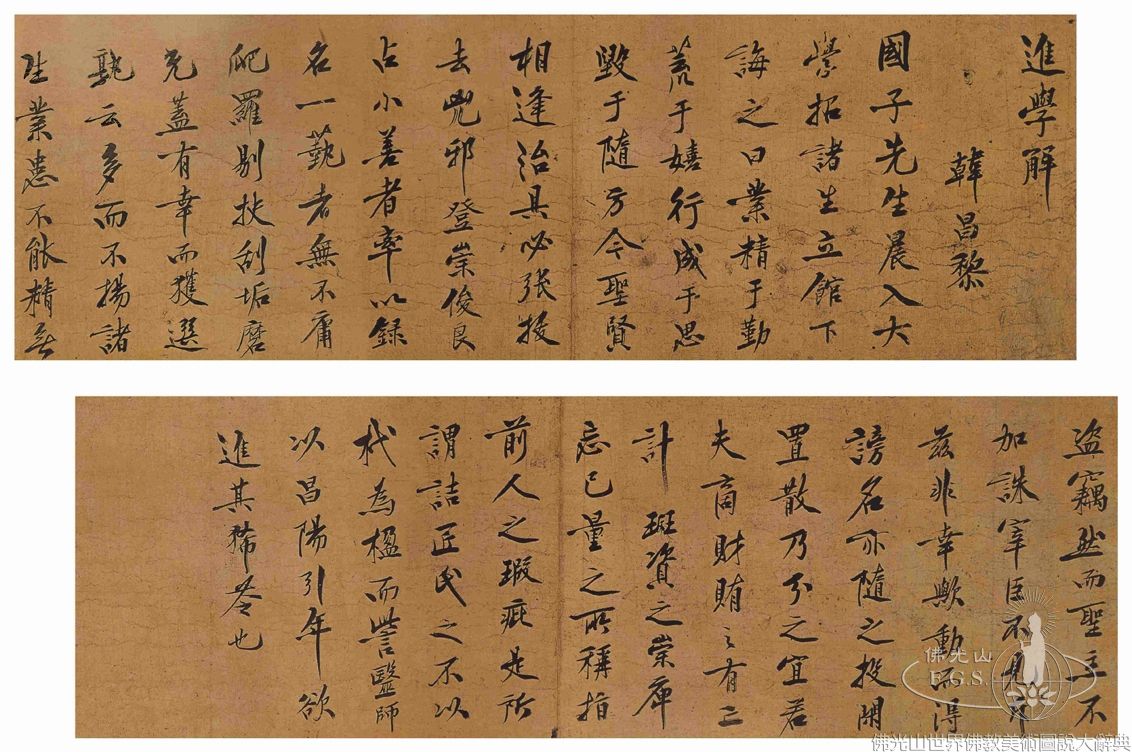 進學解
韓昌黎
國子先生晨入大
學招諸生立館下
誨之曰業精于勤
荒于嬉行成于思
毀于隨方今聖賢
相逢治具必張拔
去兇邪登崇俊良
占小善者率以録
名一藝者無不庸
爬羅剔抉刮垢磨
光蓋有幸而獲選
孰云多而不揚諸
生業患不能精無
盜竊然而聖主不
加誅宰臣不見斥
茲非幸歟動而得
謗名亦隨之投閑
置散乃分之宜若
夫商財賄之有亡
計班資之崇庳
忘己量之所稱指
前人之瑕疵是所
謂詰匠氏之不以
杙為楹而訾醫師
以昌陽引年欲
進其豨苓也
佛光山
F.G.S.
佛光山世界佛教美術圖說大辭典